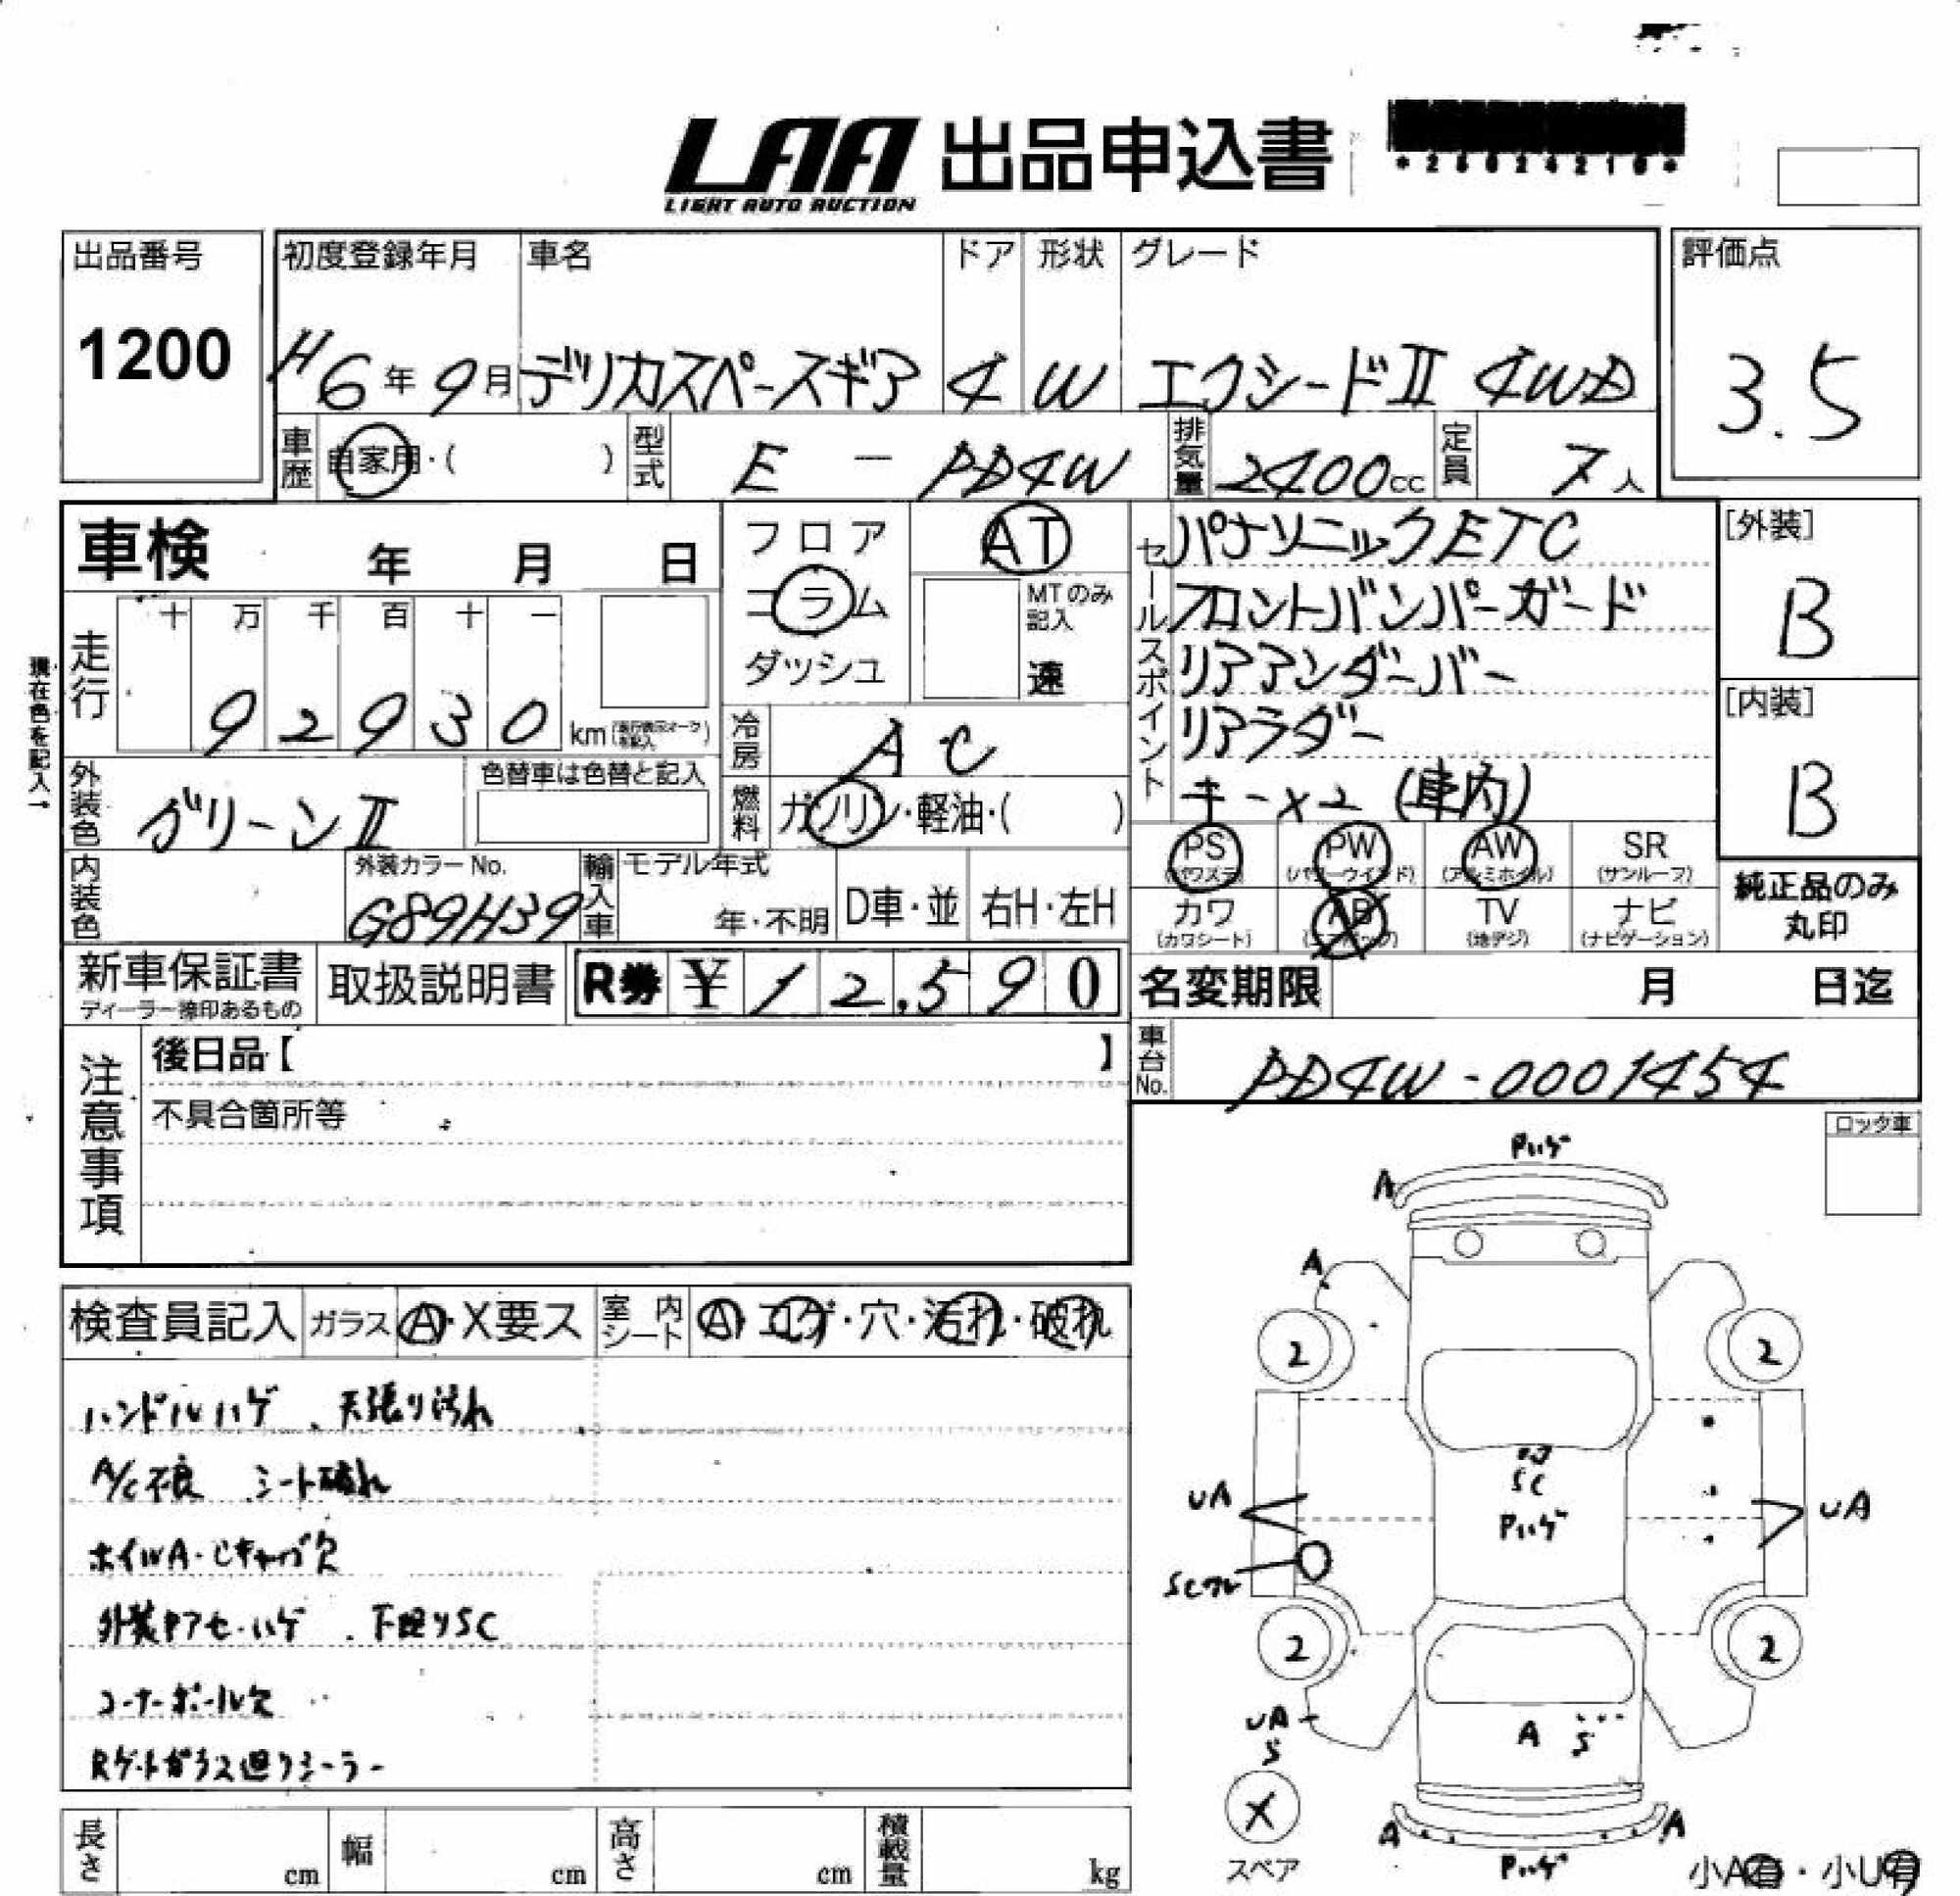 LAA 出品申込書
LIGHT AUTO AUCTION
出品番号 初度登録年月 車名 ドア 形状 グレード 評価点
1200 H6年9月 デリカスペースギア 4 W エクシードⅡ 4WD 3.5
車歴 自家用・( ) 型式 E - PD4W 排気量 2400cc 定員 7人
車検 年 月 日
フロア AT
コラム
ダッシュ
MTのみ
記入
速
セールスポイント
パナソニックETC
フロントバンパーガード
リアアンダーバー
リアラダー
キー×2 (車内)
[外装]
B
[内装]
B
現在色を記入→
走行 十 万 千 百 十 一
92930 km
冷房 AC
外装色 グリーンⅡ 色替車は色替と記入
燃料 ガソリン・軽油・( )
内装色 外装カラーNo. G89H39
輸入車 モデル年式 年・不明 D車・並 右H・左H
PS PW AW SR
(パワステ) (パワーウインド) (アルミホイル) (サンルーフ)
カワ AB TV ナビ
(カワシート) (エアバック) (地デジ) (ナビゲーション)
純正品のみ
丸印
新車保証書 取扱説明書 R券 ¥12,590 名変期限 月 日迄
ディーラー捺印あるもの
車台No. PD4W-0001454
注意事項
後日品【 】
不具合箇所等
ロック車
検査員記入 ガラス A・X要ス 室内シート A・コゲ・穴・汚れ・破れ
ハンドルハゲ、天張り汚れ
A/C不良 シート破れ
ホイルA・Cキャップ欠
外装中アセ・ハゲ、下廻りSC
コーナーポール欠
Rゲートガラス廻りシーラー
Pハゲ
A
A
2 2
SC
Pハゲ
UA UA
2 2
UA
S
A S
X
スペア
A A
Pハゲ
小A有・小U有
長さ cm 幅 cm 高さ cm 積載量 kg